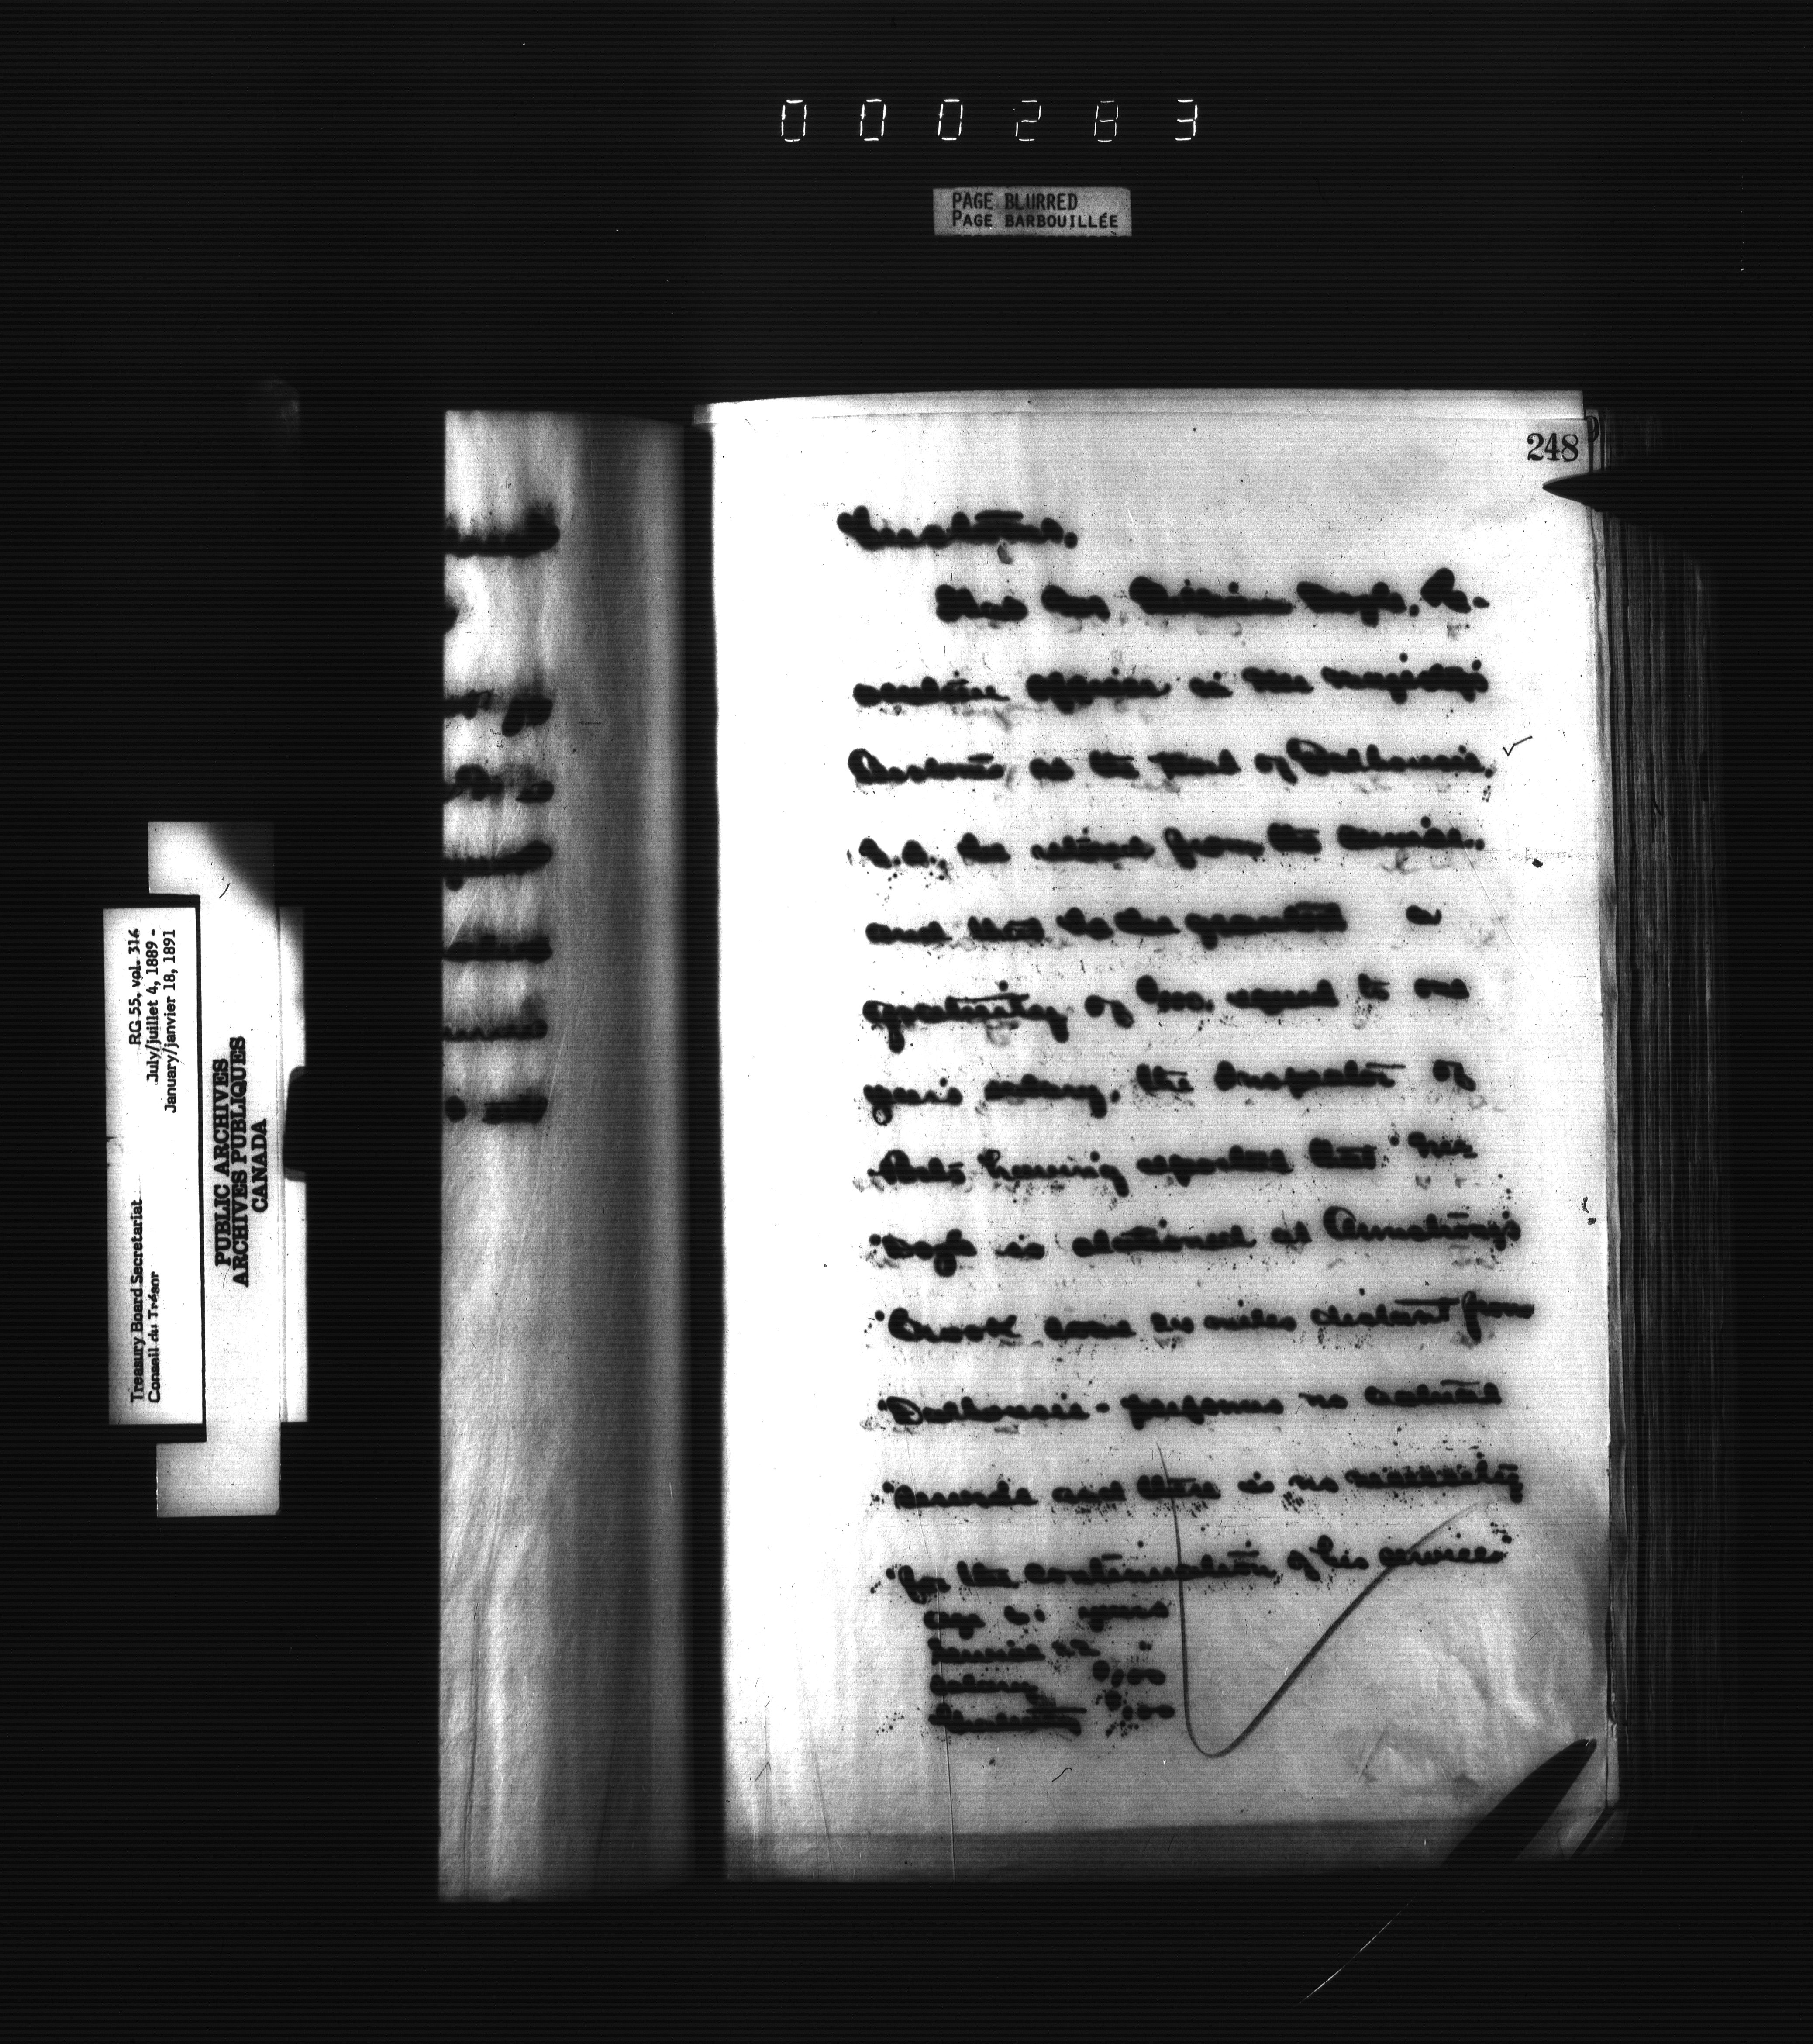 000283
PAGE BLURRED
PAGE BARBOUILLÉE
RG 55, vol. 316
July/juillet 4, 1889 -
January/janvier 18, 1891
Treasury Board Secretariat
Conseil du Trésor
PUBLIC ARCHIVES
ARCHIVES PUBLIQUES
CANADA
248
Customs.
That Mr William Doyle, Pre-
ventive Officer in Her Majesty's
Customs at the Port of Dalhousie,
N.B. be retired from the service.
and that he be granted a
gratuity of equal to one
year's salary, the Inspector of
Ports having reported that "Mr
"Doyle is stationed at Armstrong's
"Brook some miles distant from
"Dalhousie - performs no actual
"Service and there is no necessity
"for the continuation of his services"
Age years
Service 22 "
Salary
Gratuity